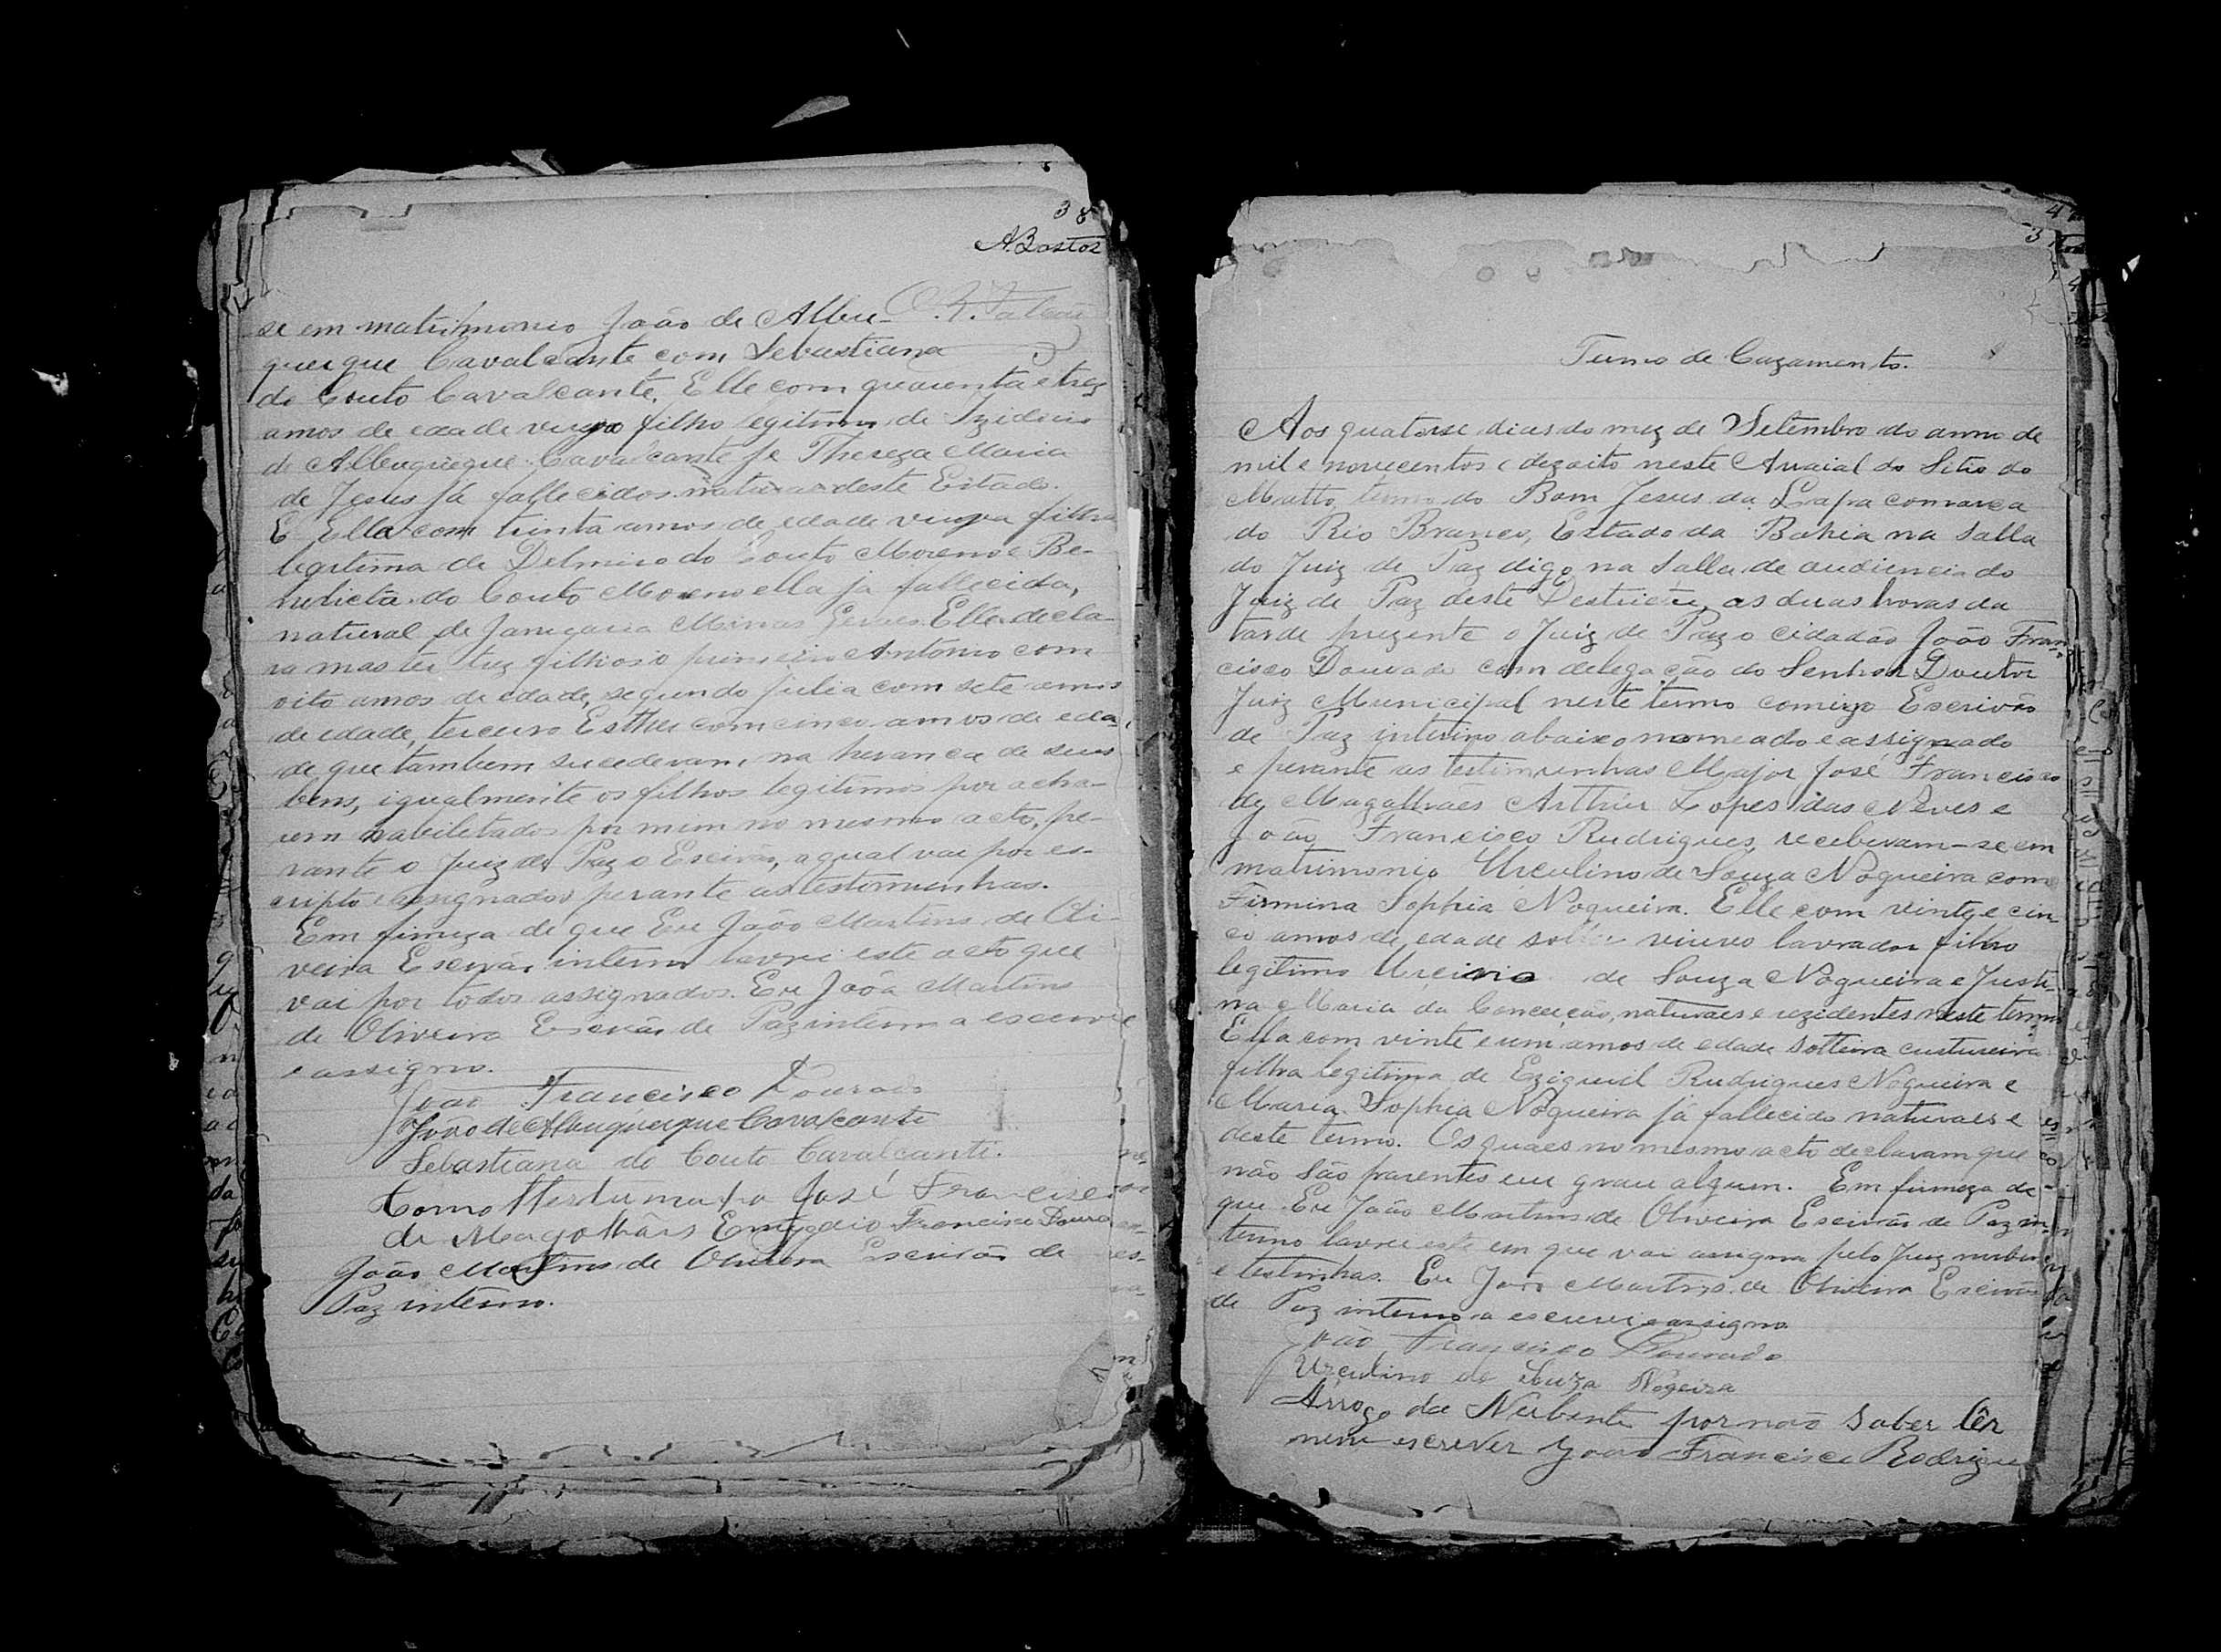 38
ABastos
se em matrimonio João de Albu-
querque Cavalcante com Sebastiana
do Couto Cavalcante, Elle com quarenta e trez
annos de edade filho legitimo de Izidorio
de Albuquerque Cavalcante e Thereza Maria
de Jesus já fallecidos deste Estado.
E Ella com trinta annos de edade filha
legitima de Delmiro do Couto Moreno e Be-
nedicta do Couto Moreno ella ja fallecida,
natural de Januaria Minas Geraes. Elles decla-
raram ter trez filhos o primeiro Antonio com
oito annos de edade, segundo Julia com sete annos
de edade, terceiro Esther com cinco annos de eda-
de, que tambem sucederam na herança de seus
bens, igualmente os filhos legitimos por acha-
rem habilitados por mim no mesmo acto, pe-
rante o Juiz de Paz o Escrivão, a qual vai por es-
cripto e assignados perante as testemunhas.
Em firmeza de que Eu João Martins de Oli-
veira Escrivão interino lavrei este acto que
vai por todos assignados. Eu João Martins
de Oliveira Escrivão de Paz interino a escrevi
e assigno.
João Francisco Dourado
João de Albuquerque Cavalcante
Sebastiana do Couto Cavalcanti.
Como José Francisco
de Magalhães Emygdio Francisco Doura
João Martins de Oliveira Escrivão de
Paz interino.
Termo de Cazamento.
Aos quatorse dias do mez de Setembro do anno de
mil e novecentos e dezoito neste Arraial do Sitio do
Matto, termo do Bom Jesus da Lapa comarca
do Rio Branco, Estado da Bahia na Salla
do Juiz de Paz digo na Salla de audiencia do
Juiz de Paz deste Destricto, as duas horas da
tarde prezente o Juiz de Paz o cidadão João Fran-
cisco Dourado com delegação do Senhor Doutor
Juiz Municipal neste termo comigo Escrivão
de Paz interino abaixo nomeado e assignado
e perante as testimunhas Major José Francisco
de Magalhães Arthur Lopes das Neves e
João Francisco Rudrigues, receberam-se em
matrimonio Urculino de Souza Nogueira com
Firmina Sophia Nogueira. Elle com vinte e cin
co annos de edade viuvo lavrador filho
legitimo de Souza Nogueira e Justi-
na Maria da Conceição, naturaes e rezidentes neste termo
Ella com vinte e um annos de edade solteira custureira
filha legitima de Eziquiel Rudrigues Nogueira e
Maria Sophia Nogueira já fallecido naturaes e
deste termo. Os quaes no mesmo acto declaram que
não são parentes em grau algum. Em firmeza de
que Eu João Martins de Oliveira Escrivão de Paz in-
terino lavrei este em que vai assigna pelo Juiz nubentes
e testinhas. Eu João Martins de Oliveira Escrivão
de Paz interino a escrevi e assigno
João Francisco Dourado
Urculino de Souza Nogeira
Arrogo da Nubente por não saber lêr
nem escrever João Francisco Rodrigue